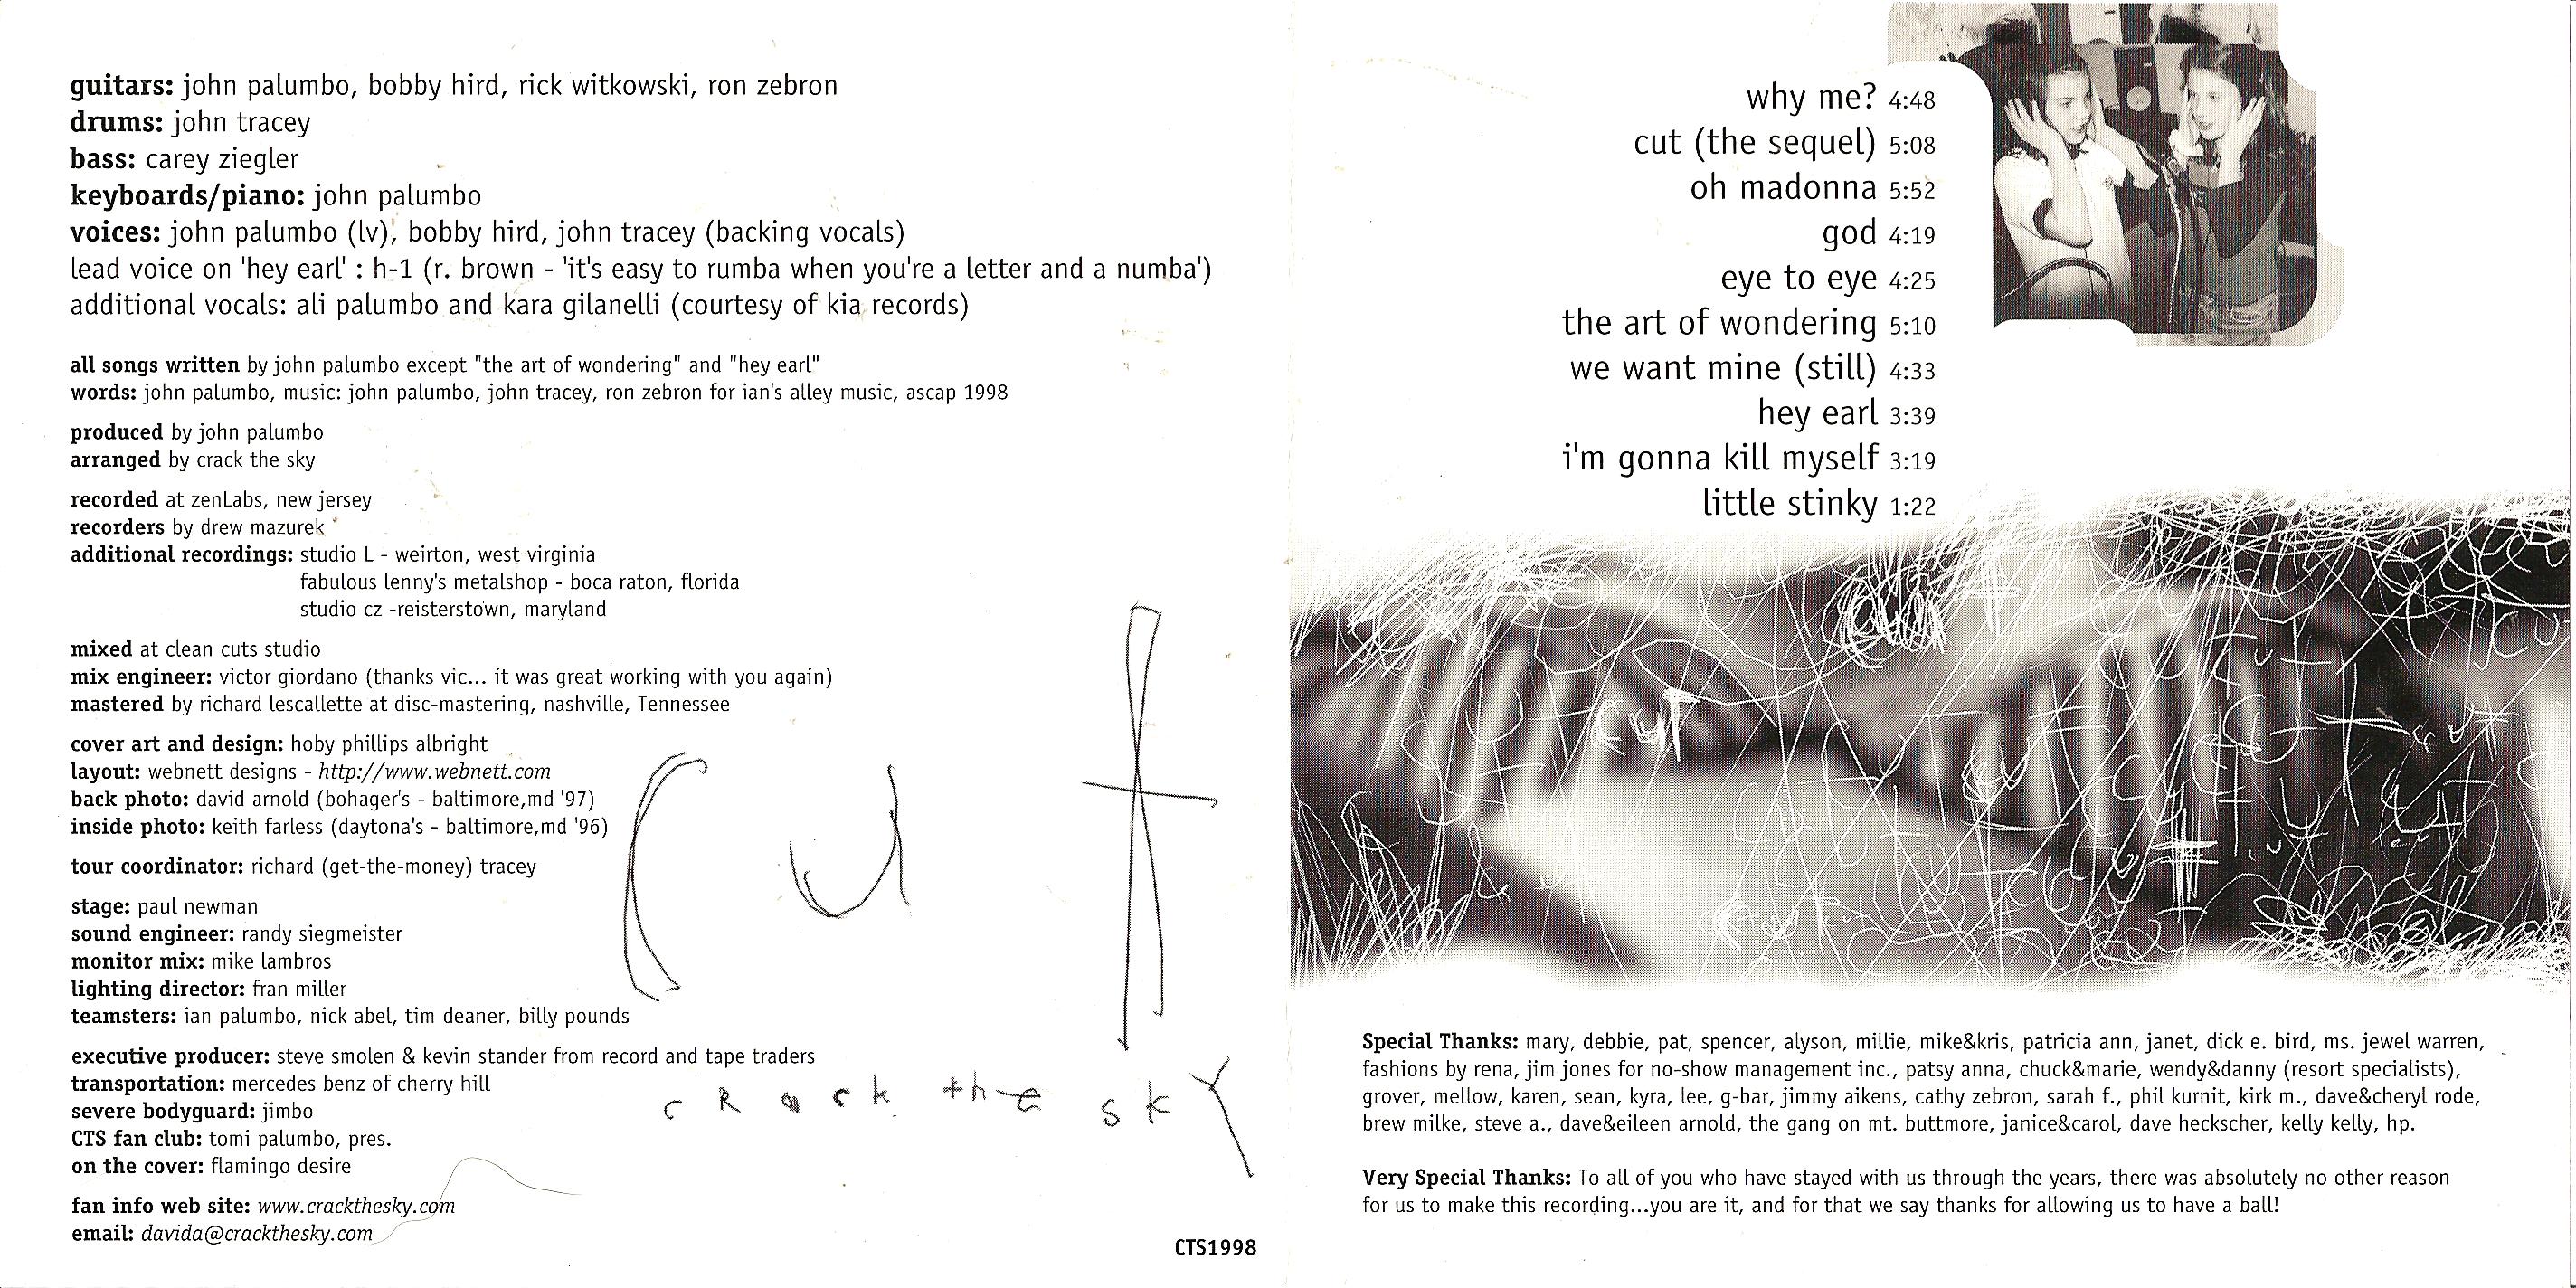 guitars: john palumbo, bobby hird, rick witkowski, ron zebron
drums: john tracey
bass: carey ziegler
keyboards/piano: john palumbo
voices: john palumbo (lv), bobby hird, john tracey (backing vocals)
lead voice on 'hey earl' : h-1 (r. brown - 'it's easy to rumba when you're a letter and a numba')
additional vocals: ali palumbo and kara gilanelli (courtesy of kia records)
all songs written by john palumbo except "the art of wondering" and "hey earl"
words: john palumbo, music: john palumbo, john tracey, ron zebron for ian's alley music, ascap 1998
produced by john palumbo
arranged by crack the sky
recorded at zenLabs, new jersey
recorders by drew mazurek
additional recordings: studio L - weirton, west virginia
fabulous lenny's metalshop - boca raton, florida
studio cz -reisterstown, maryland
mixed at clean cuts studio
mix engineer: victor giordano (thanks vic... it was great working with you again)
mastered by richard lescallette at disc-mastering, nashville, Tennessee
cover art and design: hoby phillips albright
layout: webnett designs - http://www.webnett.com
back photo: david arnold (bohager's - baltimore,md '97)
inside photo: keith farless (daytona's - baltimore,md '96)
tour coordinator: richard (get-the-money) tracey
stage: paul newman
sound engineer: randy siegmeister
monitor mix: mike lambros
lighting director: fran miller
teamsters: ian palumbo, nick abel, tim deaner, billy pounds
executive producer: steve smolen & kevin stander from record and tape traders
transportation: mercedes benz of cherry hill
severe bodyguard: jimbo
CTS fan club: tomi palumbo, pres.
on the cover: flamingo desire
fan info web site: www.crackthesky.com
email: davida@crackthesky.com
cut
cRack thE skY
CTS1998
why me? 4:48
cut (the sequel) 5:08
oh madonna 5:52
god 4:19
eye to eye 4:25
the art of wondering 5:10
we want mine (still) 4:33
hey earl 3:39
i'm gonna kill myself 3:19
little stinky 1:22
cut
cut
cut
cut
Special Thanks: mary, debbie, pat, spencer, alyson, millie, mike&kris, patricia ann, janet, dick e. bird, ms. jewel warren,
fashions by rena, jim jones for no-show management inc., patsy anna, chuck&marie, wendy&danny (resort specialists),
grover, mellow, karen, sean, kyra, lee, g-bar, jimmy aikens, cathy zebron, sarah f., phil kurnit, kirk m., dave&cheryl rode,
brew milke, steve a., dave&eileen arnold, the gang on mt. buttmore, janice&carol, dave heckscher, kelly kelly, hp.
Very Special Thanks: To all of you who have stayed with us through the years, there was absolutely no other reason
for us to make this recording...you are it, and for that we say thanks for allowing us to have a ball!